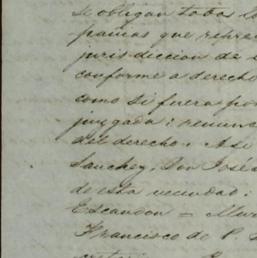 se obligan todos
pañias que repre
jurisdiccion de
conforme a derecho
como si fuera por
juzgada: renunc
del derecho. Asi
Sanchez, Don José
de esta vecindad:
Escandon =
Francisco de P.